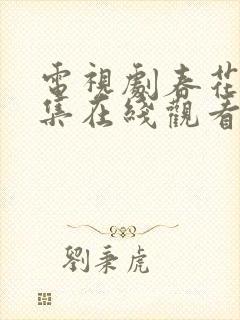 電視劇春花
集在綫觀看
劉秉虎